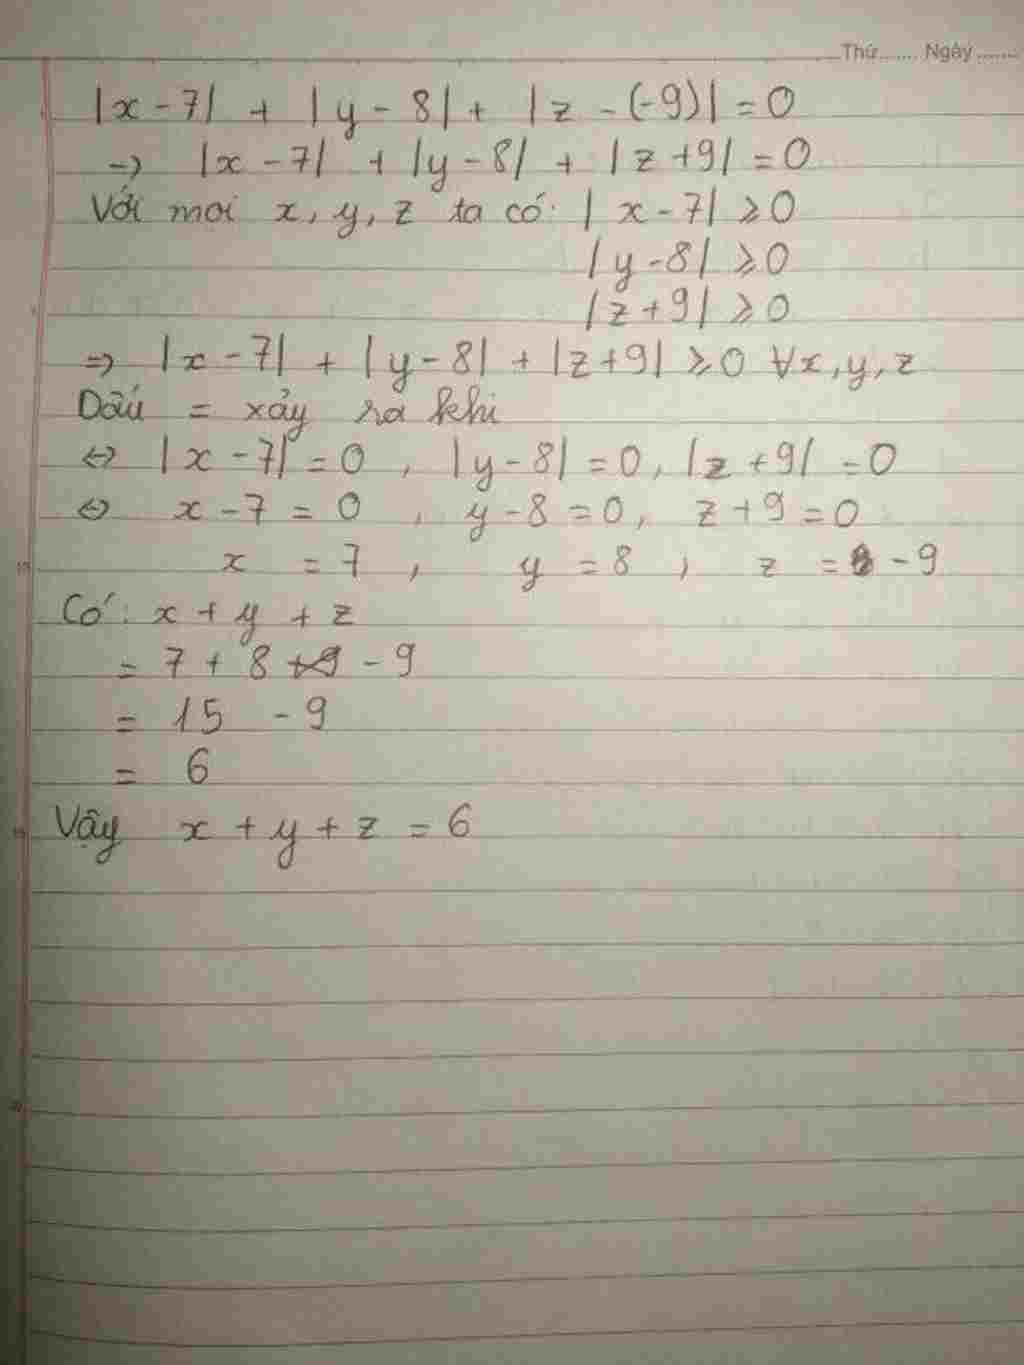 Thứ....... Ngày.......
|x - 7| + |y - 8| + |z - (-9)| = 0
→ |x - 7| + |y - 8| + |z + 9| = 0
Với mọi x, y, z ta có: |x - 7| ⩾ 0
|y - 8| ⩾ 0
|z + 9| ⩾ 0
⇒ |x - 7| + |y - 8| + |z + 9| ⩾ 0 ∀x, y, z
Dấu = xảy ra khi
⇔ |x - 7| = 0 , |y - 8| = 0, |z + 9| = 0
⇔ x - 7 = 0 , y - 8 = 0, z + 9 = 0
x = 7 , y = 8 , z = - 9
Có: x + y + z
= 7 + 8 - 9
= 15 - 9
= 6
Vậy x + y + z = 6